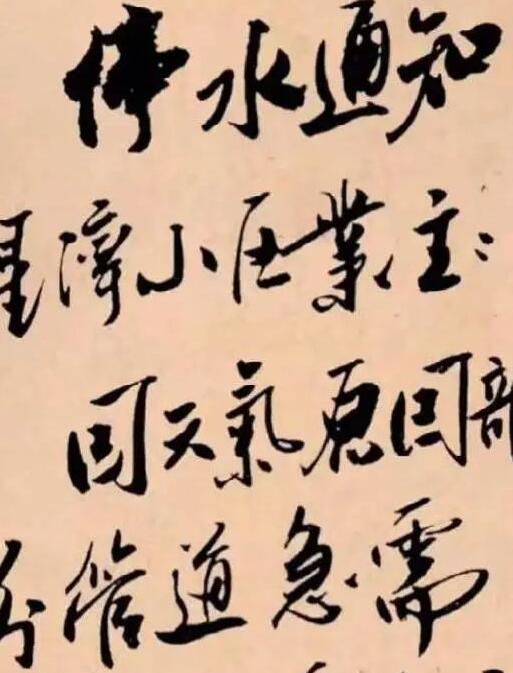 停水通知
小区業主:
因天氣原因部
分管道急需